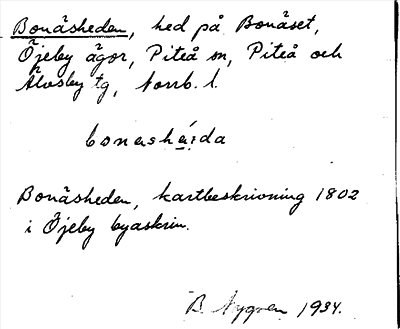 Bonäsheden, hed på Bonäset,
Öjeby ägor, Piteå sn, Piteå och
Älvsby tg, Norrb. l.
bonashä:da
Bonäsheden, kartbeskrivning 1802
i Öjeby byaskrin.
B. Nygren 1934.